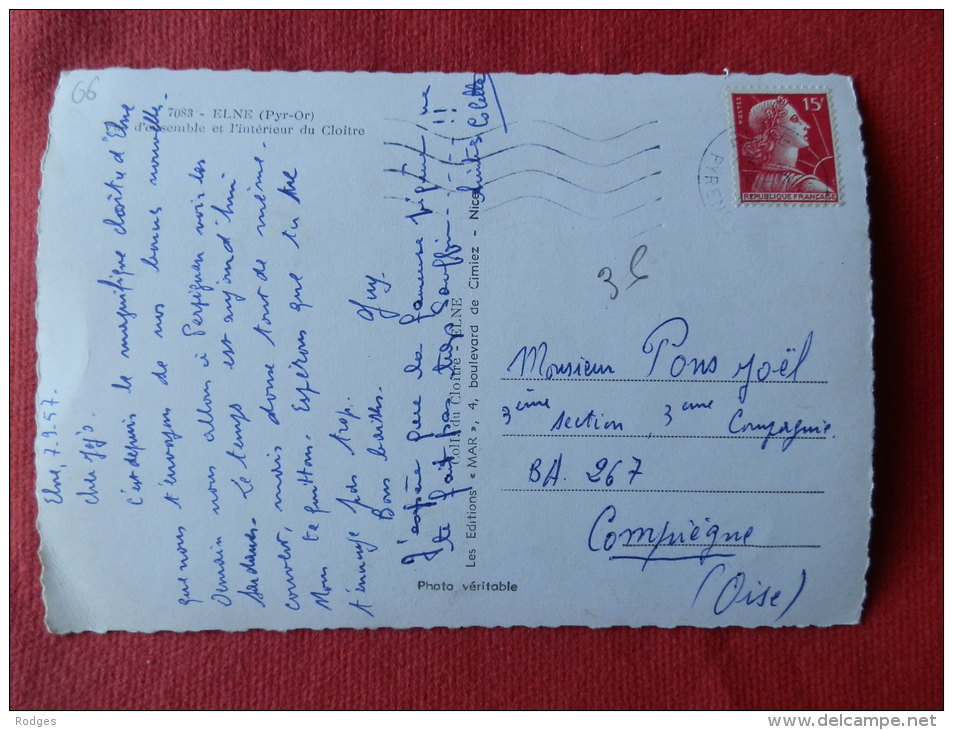 66
7083 - ELNE (Pyr-Or)
d'ensemble et l'intérieur du Cloitre
Elne, 7.9.57.
Cher Jojo
C'est depuis le magnifique cloître d'Elne
que nous t'envoyons de nos bonnes nouvelles.
Demain nous allons à Perpignan voir les
Sardanes. Le temps est aujourd'hui
couvert, mais donne tout de même.
Nous te quittons. Espérons que tu ne
t'ennuye pas trop.
Bons baisers. Guy.
J'espère que la fameuse piqûre, ne
te fait pas trop souffrir !!
Colette
Coll. du Cloître - ELNE
Les Editions « MAR », 4, boulevard de Cimiez - Nice
Photo véritable
POSTES
15F
REPUBLIQUE FRANÇAISE
PYREN
Monsieur Pons Joël
3ème section, 3ème Compagnie.
BA. 267
Compiègne
(Oise)
Rodges
www.delcampe.net